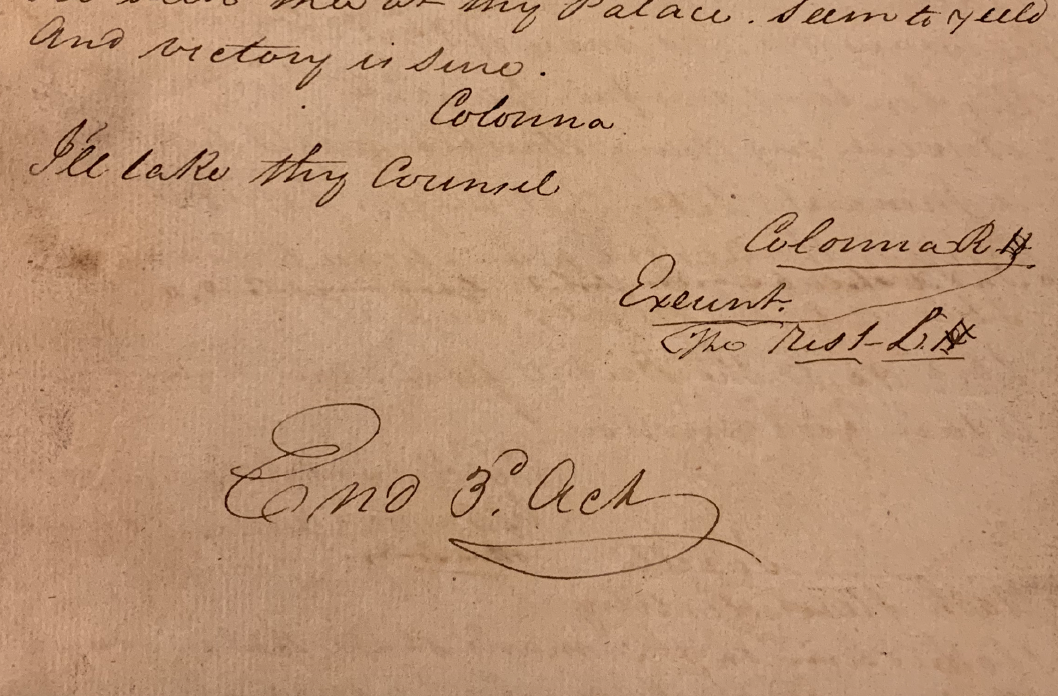 thee at my Palace. Seem to yeild
And victory is sure.
Colonna
I'll take thy Counsel
Colonna R H
Exeunt.
The rest L H
End 3d. Act